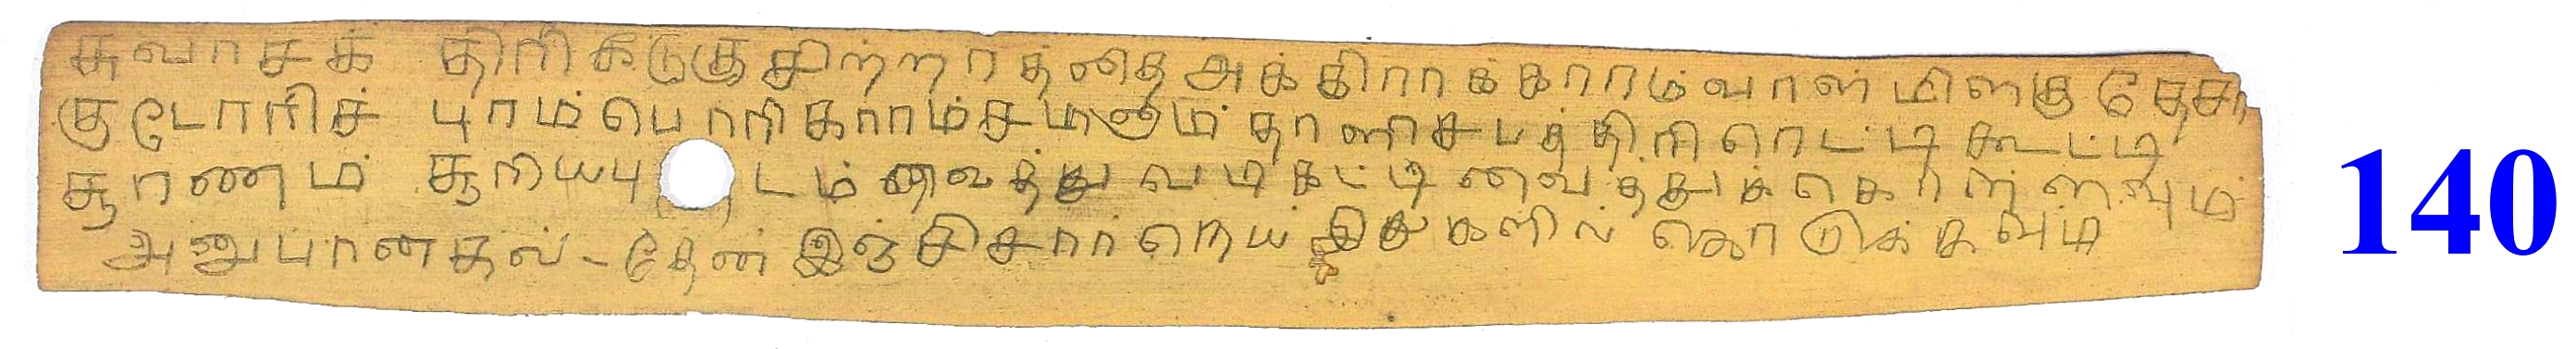 சுவாசக் திரிகடுகு சிற்றரத்தை அக்கிராக்காரம் வால் மிளகு தேசா
குடோரிச் புரம் பொரிகாரம் சமனும் தாளிசபத்திரி ரொட்டி கூட்டி
சூரணம் சூரியபுடம் வைத்து வடிகட்டி வைத்துக் கொள்ளவும்
அனுபானகல் - தேன் இஞ்சி சாா் நெய் இதுகளில் கொடுக்கவும்
140